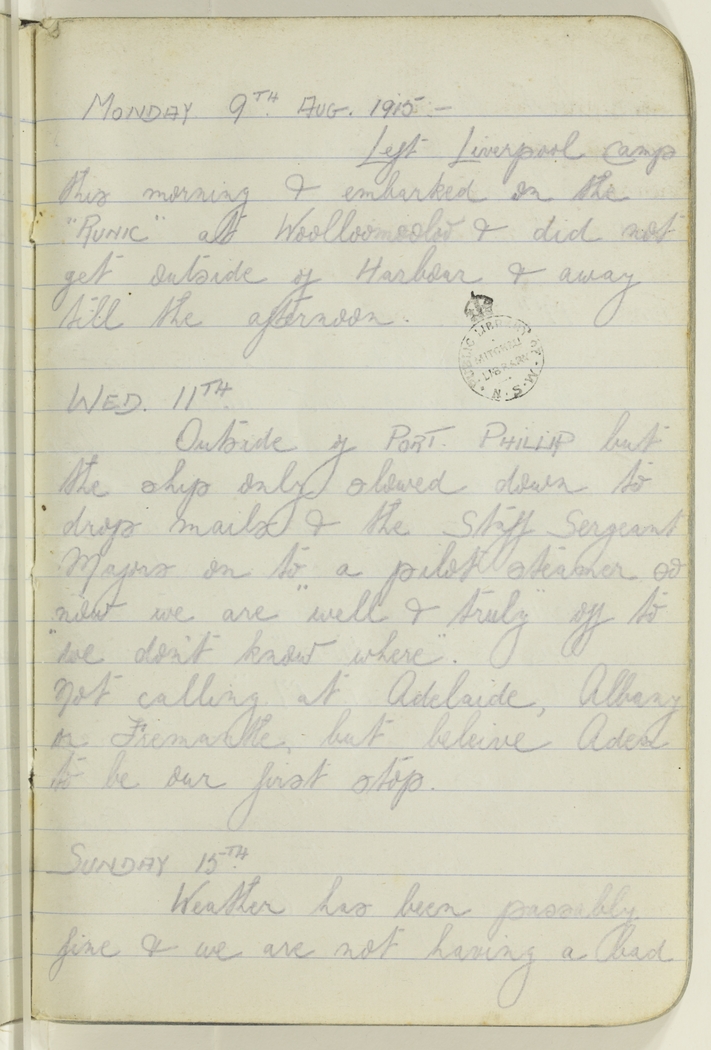 MONDAY 9TH AUG. 1915 –
Left Liverpool Camp
this morning & embarked on the
"RUNIC" at Woolloomooloo & did not
get outside of Harbour & away
till the afternoon.
PUBLIC LIBRARY OF N.S.W.
MITCHELL
LIBRARY
WED. 11TH
Outside of PORT. PHILLIP but
the ship only slowed down to
drop mails & the Staff Sergeant
Majors on to a pilot steamer so
now we are "well & truly" off to
"we don't know where".
Not calling at Adelaide, Albany
or Fremantle, but beleive Aden
to be our first stop.
SUNDAY 15TH
Weather has been passably
fine & we are not having a bad